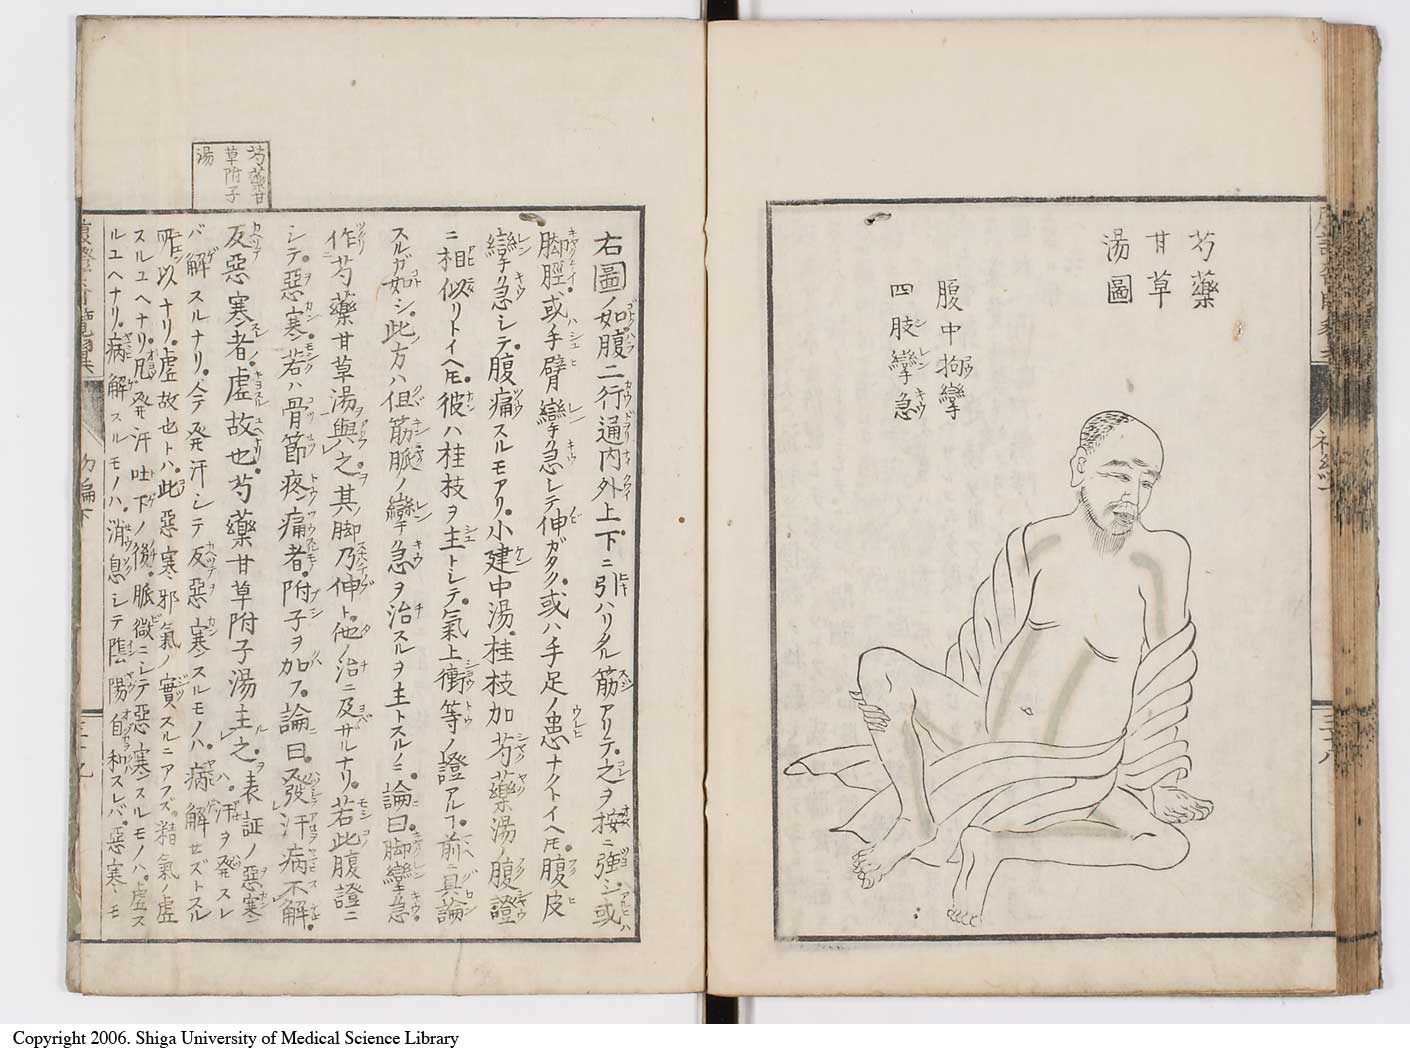 芍藥
甘草
湯圖
腹中拘攣
四肢攣急
芍藥甘
草附子
湯
右圖ノ如腹二行通内外上下ニ引ハリタル筋アリテ之ヲ按ニ強シ或
脚脛或手臂攣急シテ伸ガタク或ハ手足ノ患ナクトイヘ𪜈腹皮
攣急シテ腹痛スルモアリ小建中湯桂枝加芍藥湯ノ腹證
ニ相似リトイヘ𪜈彼ハ桂枝ヲ主トシテ氣上衝等ノ證アルヿ前ニ具論
スルガ如シ此方ハ但筋脈ノ攣急ヲ治スルヲ主トスルノミ論曰脚攣急
作芍藥甘草湯與之其脚乃伸ト他ノ治ニ及ザルナリ若此腹證ニ
シテ惡寒若ハ骨節疼痛者附子ヲ加フ論曰發汗病不解
反惡寒者虛故也芍藥甘草附子湯主之表証ノ惡寒
ハ汗ヲ發スレ
バ解スルナリ今發汗シテ反惡寒スルモノハ病解セズトスル
所以ナリ虛故也トハ此惡寒邪氣ノ實スルニアラズ精氣ノ虛
スルユヘナリ凡發汗吐下ノ後脈微ニシテ惡寒スルモノハ虛ス
ルユヘナリ病解スルモノハ消息シテ陰陽自和スレバ惡寒モ
初編下
三十九
Copyright 2006. Shiga University of Medical Science Library